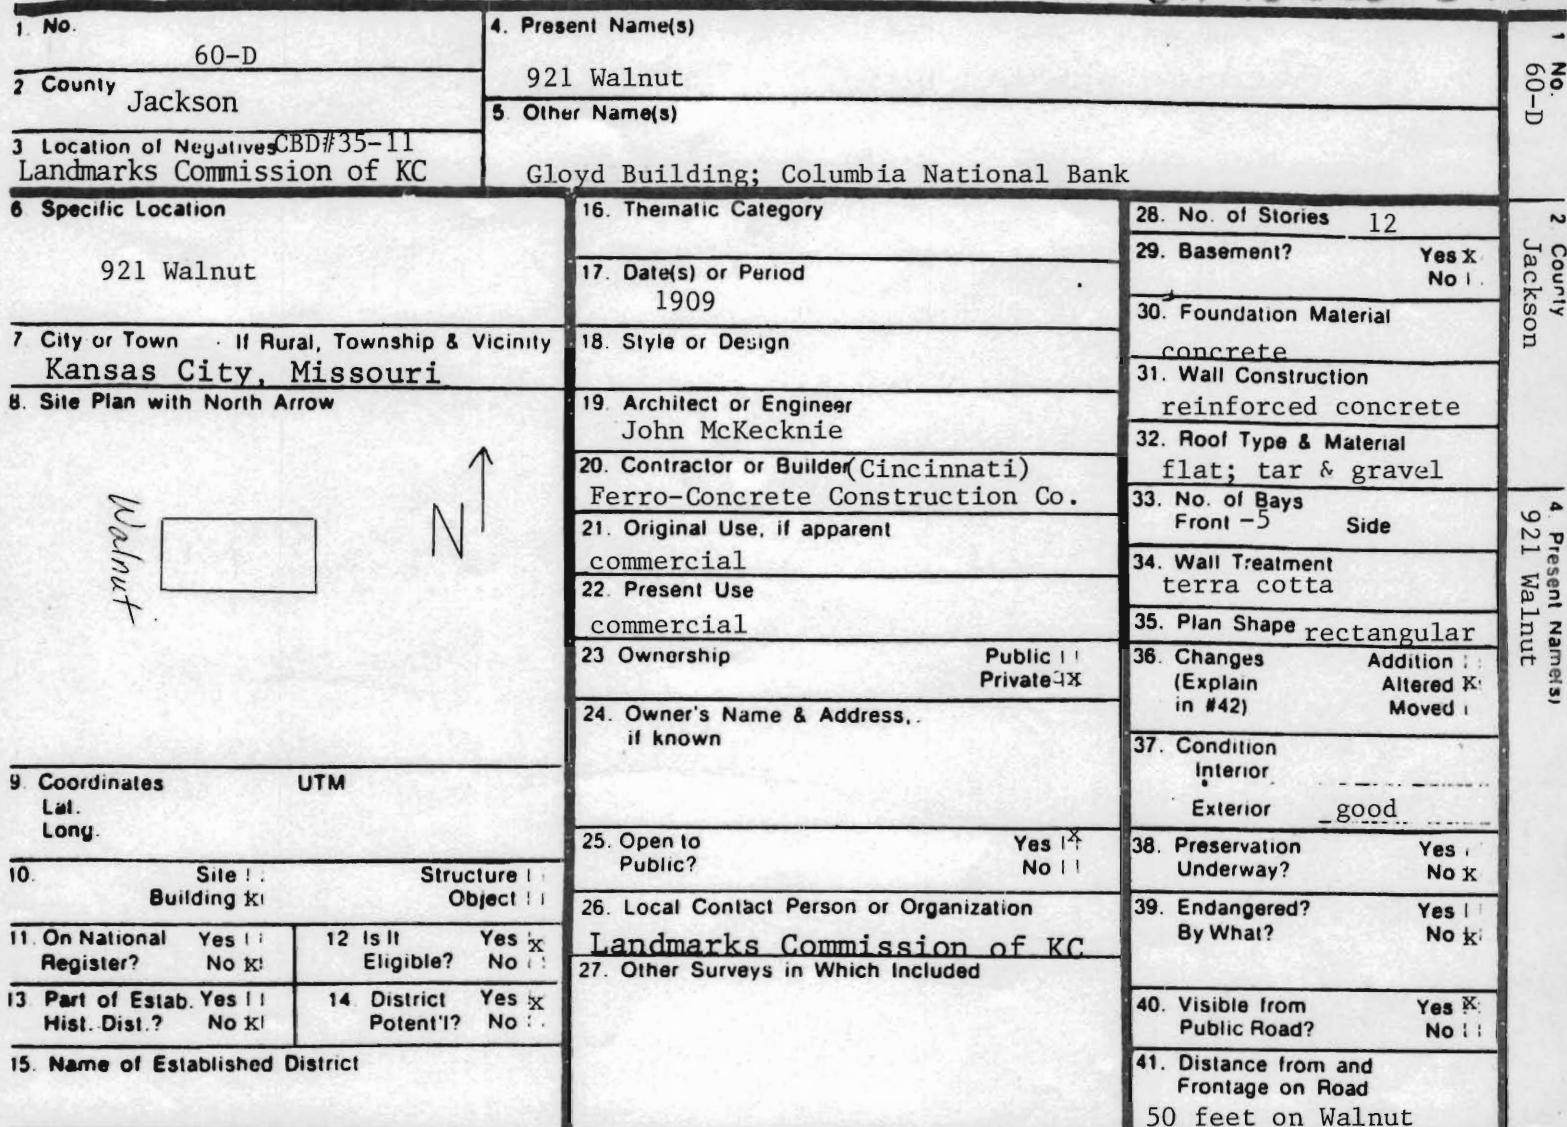 1. No.
60-D
2 County
Jackson
3 Location of Negatives CBD#35-11
Landmarks Commission of KC
4. Present Name(s)
921 Walnut
5. Other Name(s)
Gloyd Building; Columbia National Bank
6 Specific Location
921 Walnut
7 City or Town If Rural, Township & Vicinity
Kansas City, Missouri
8. Site Plan with North Arrow
Walnut
N
9. Coordinates UTM
Lat.
Long.
10. Site Structure
Building x Object
11. On National Yes
Register? No x
12 Is It Yes x
Eligible? No
13 Part of Estab. Yes
Hist. Dist.? No x
14. District Yes x
Potent'l? No
15. Name of Established District
16. Thematic Category
17. Date(s) or Period
1909
18. Style or Design
19. Architect or Engineer
John McKecknie
20. Contractor or Builder (Cincinnati)
Ferro-Concrete Construction Co.
21. Original Use, if apparent
commercial
22. Present Use
commercial
23 Ownership Public
Private x
24. Owner's Name & Address,
if known
25. Open to Yes x
Public? No
26. Local Contact Person or Organization
Landmarks Commission of KC
27. Other Surveys in Which Included
28. No. of Stories 12
29. Basement? Yes x
No
30. Foundation Material
concrete
31. Wall Construction
reinforced concrete
32. Roof Type & Material
flat; tar & gravel
33. No. of Bays
Front -5 Side
34. Wall Treatment
terra cotta
35. Plan Shape rectangular
36. Changes Addition
(Explain Altered x
in #42) Moved
37. Condition
Interior
Exterior good
38. Preservation Yes
Underway? No x
39. Endangered? Yes
By What? No x
40. Visible from Yes x
Public Road? No
41. Distance from and
Frontage on Road
50 feet on Walnut
1 No.
60-D
2 County
Jackson
4. Present Name(s)
921 Walnut